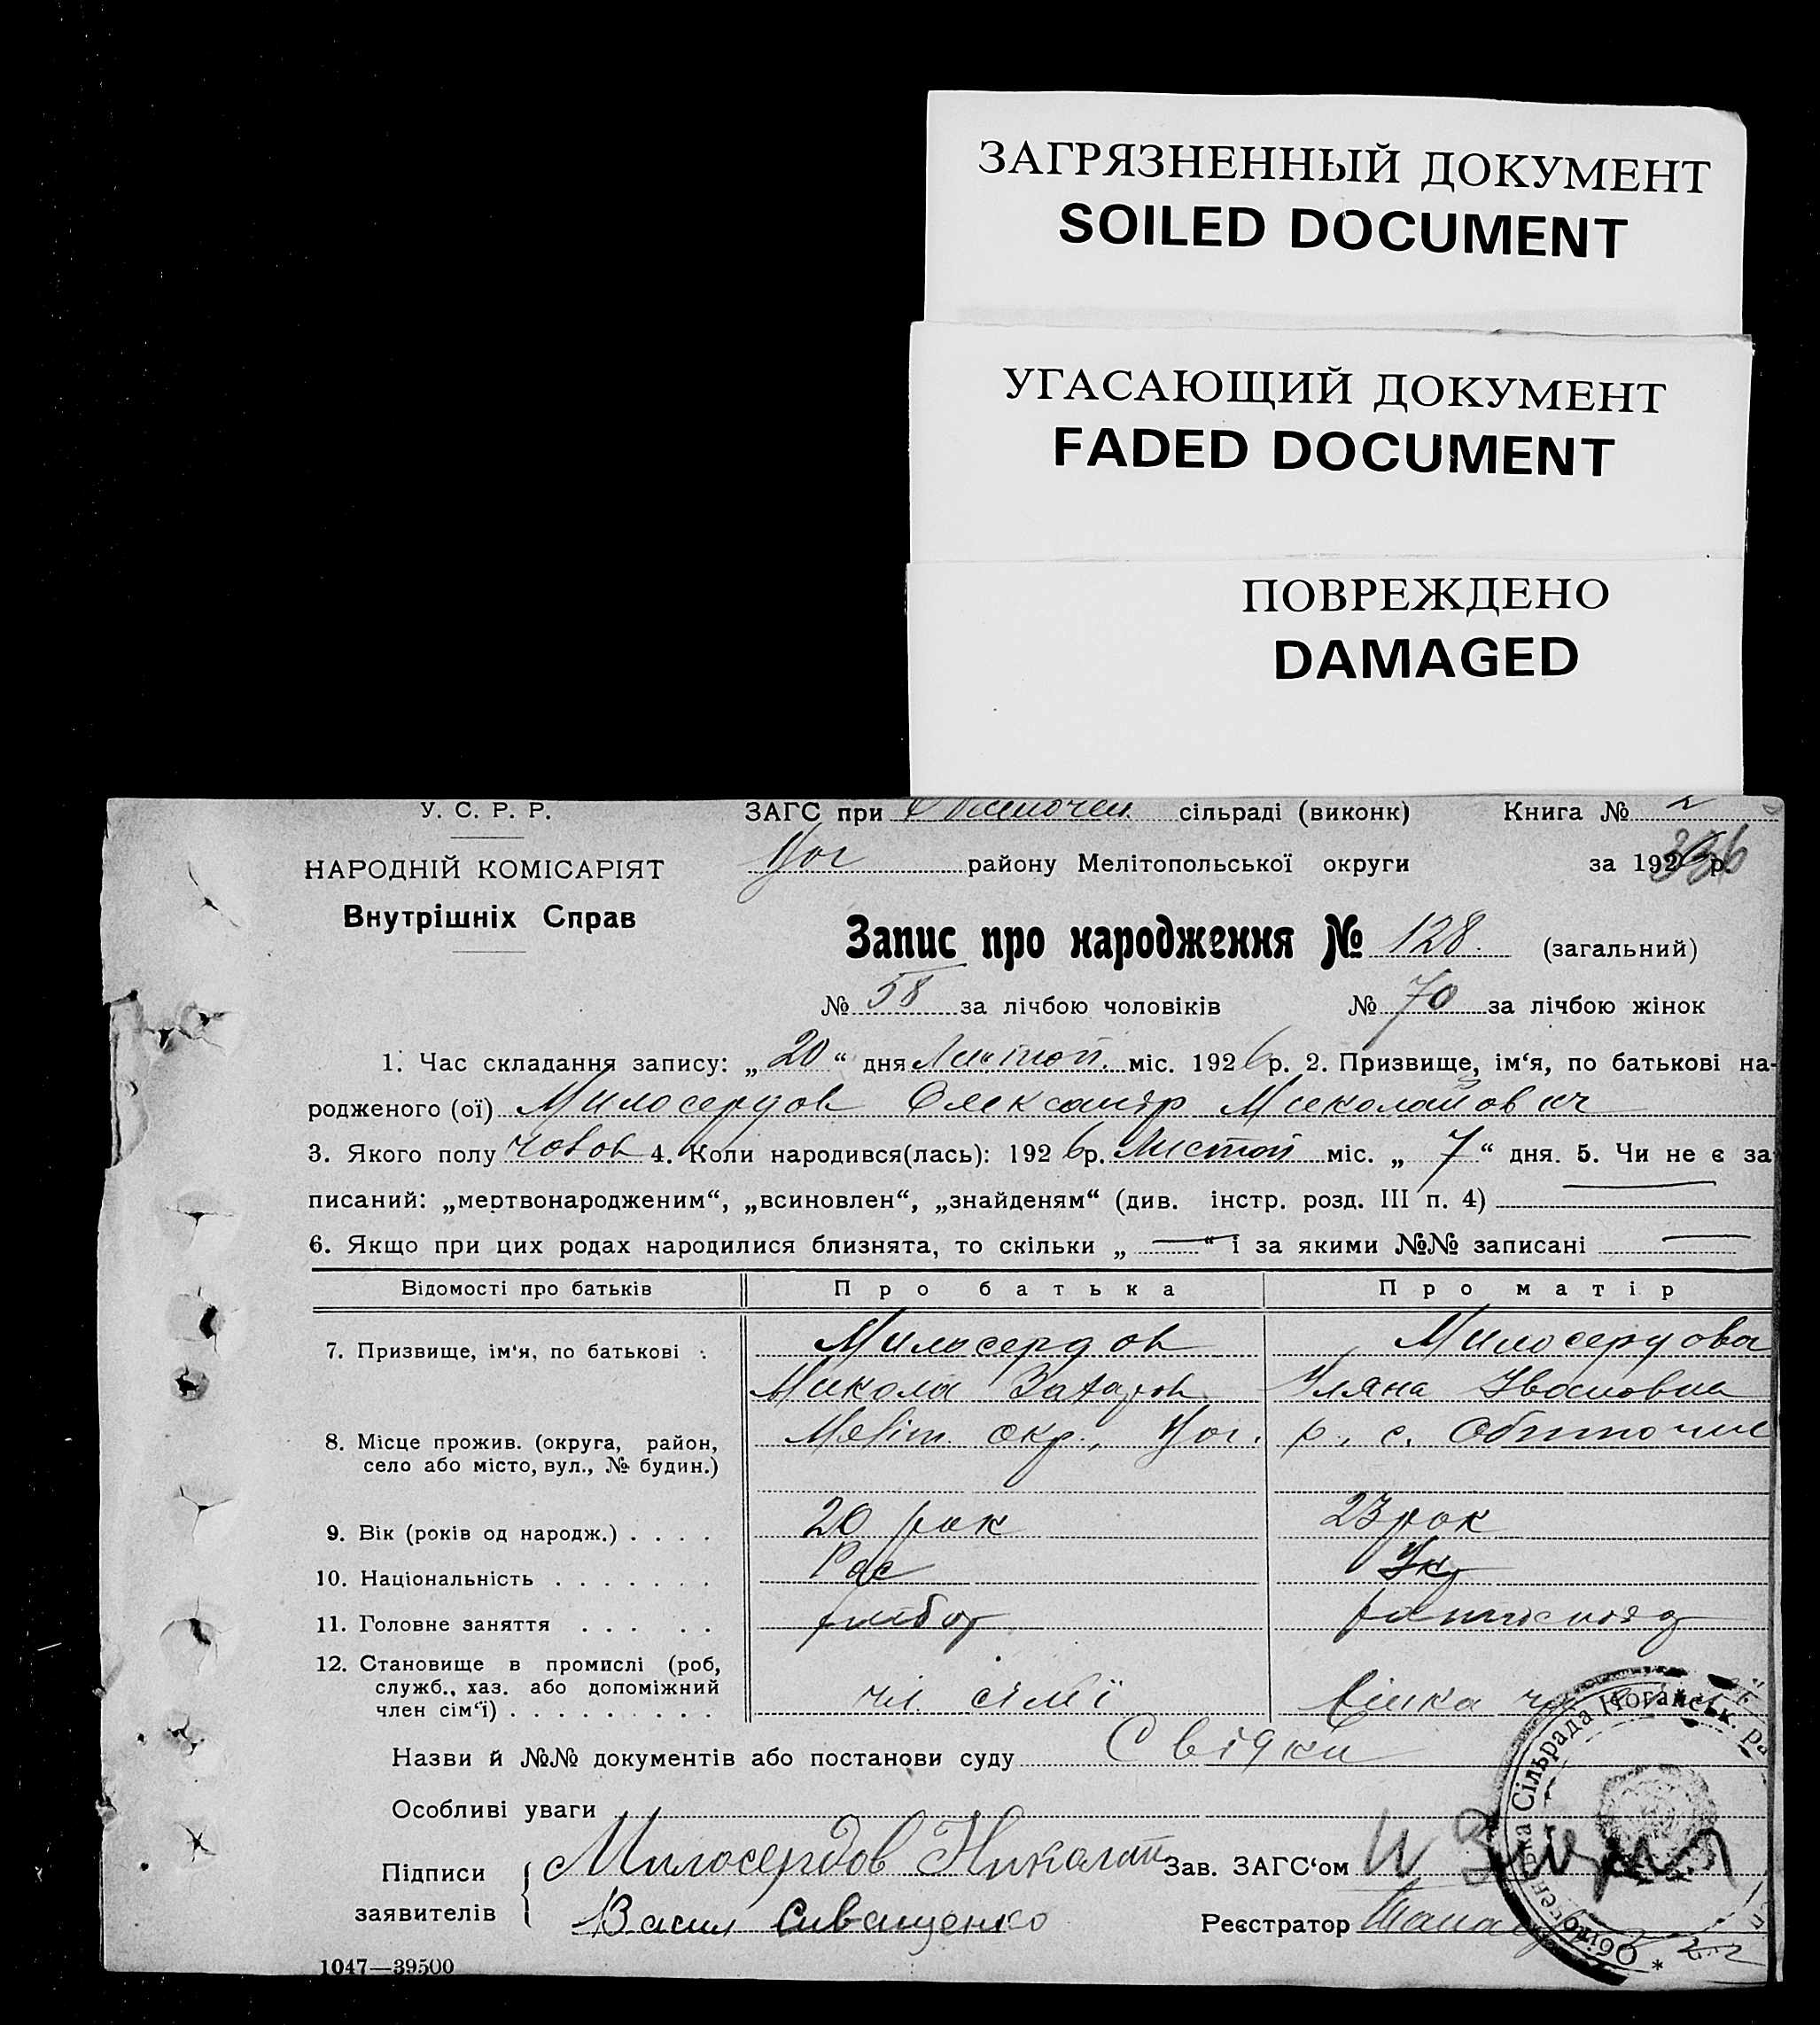 ЗАГРЯЗНЕННЫЙ ДОКУМЕНТ
SOILED DOCUMENT
УГАСАЮЩИЙ ДОКУМЕНТ
FADED DOCUMENT
ПОВРЕЖДЕНО
DAMAGED
У. С. Р. Р. ЗАГС при сільраді (виконк) Книга № 2
НАРОДНІЙ КОМІСАРІЯТ Ног району Мелітопольської округи за 1926 р.
Внутрішніх Справ
Запис про народження № 128. (загальний)
№ 58 за лічбою чоловіків № 70 за лічбою жінок
1. Час складання запису: „ 20 “ дня Листоп. міс. 1926 р. 2. Призвище, ім‘я, по батькові на-
родженого (ої) Милосердов Олександр Миколайович
3. Якого полу 4. Коли народився(лась): 1926 р. Листоп міс. „ 7 “ дня. 5. Чи не є за
писаний: „мертвонародженим“, „всиновлен“, „знайденям“ (див. інстр. розд. III п. 4) —
6. Якщо при цих родах народилися близнята, то скільки „ — “ і за якими №№ записані —
Відомості про батьків Про батька Про матір
7. Призвище, ім‘я, по батькові . Милосердов Милосердова
Микола Захаров Уляна Ивановна
8. Місце прожив. (округа, район, Меліт. окр., Ног. р., с. Обіточне
село або місто, вул., № будин.)
9. Вік (років од народж.) . . . . 20 рок 23 рок
10. Національність . . . . . . . Рос Укр
11. Головне заняття . . . . .
12. Становище в промислі (роб,
служб., хаз. або допоміжний
член сім‘ї) . . . . . . . . . чл. сімї
Назви й №№ документів або постанови суду Свідки
Особливі уваги
Підписи Милосердов Николай Зав. ЗАГС‘ом
заявителів Васил Сиващенко Реєстратор
* Обіточенська Сільрада Ногайськ. Ра
1047—39500